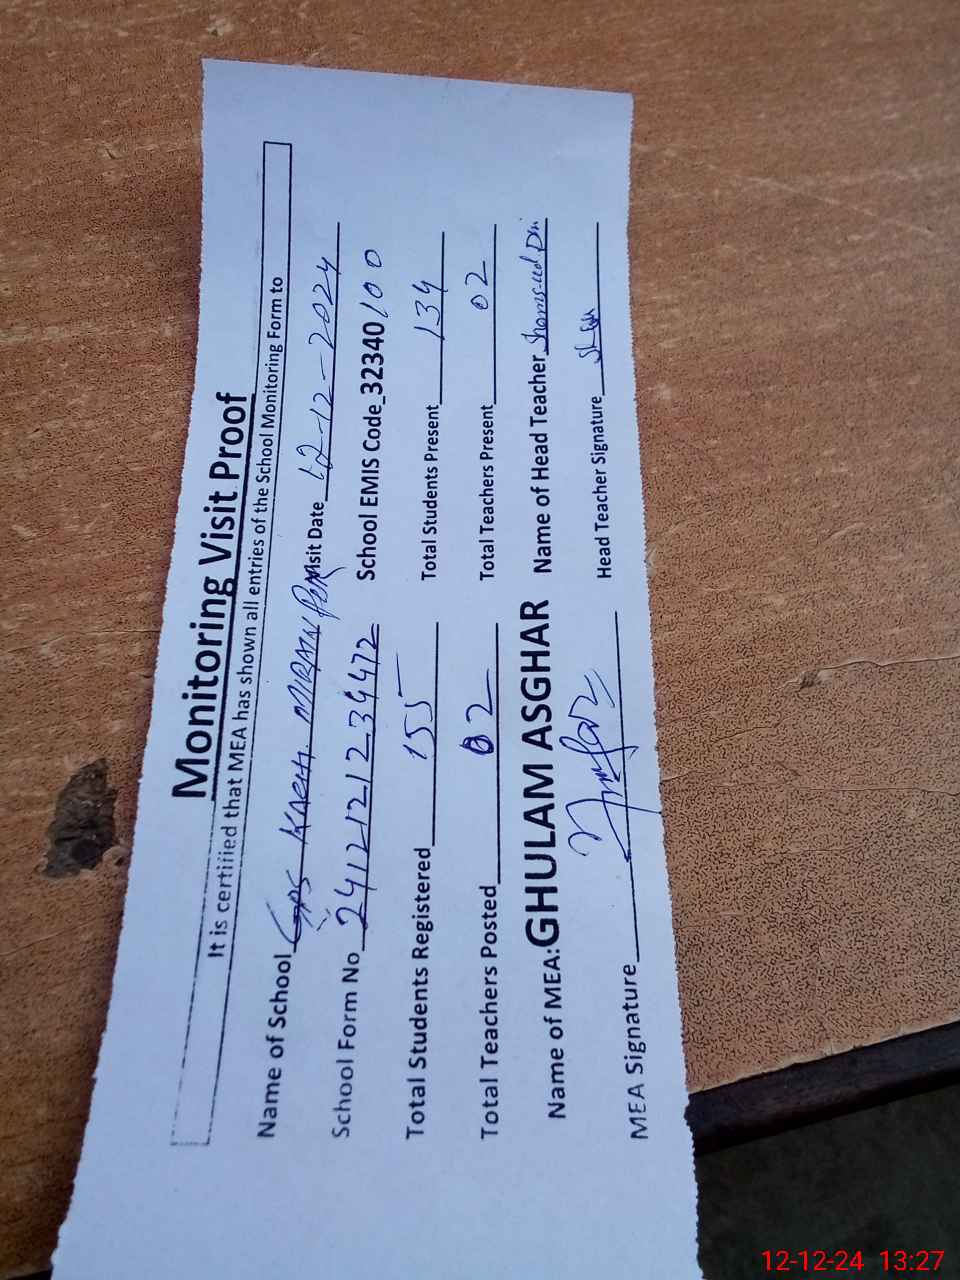 Monitoring Visit Proof
It is certified that MEA has shown all entries of the School Monitoring Form to
Name of School GPS Visit Date 12-12-2024
School Form No 2412121234472 School EMIS Code_32340100
Total Students Registered 155 Total Students Present 134
Total Teachers Posted 02 Total Teachers Present 02
Name of MEA: GHULAM ASGHAR Name of Head Teacher Shams-ud-Din
MEA Signature Head Teacher Signature
12-12-24 13:27